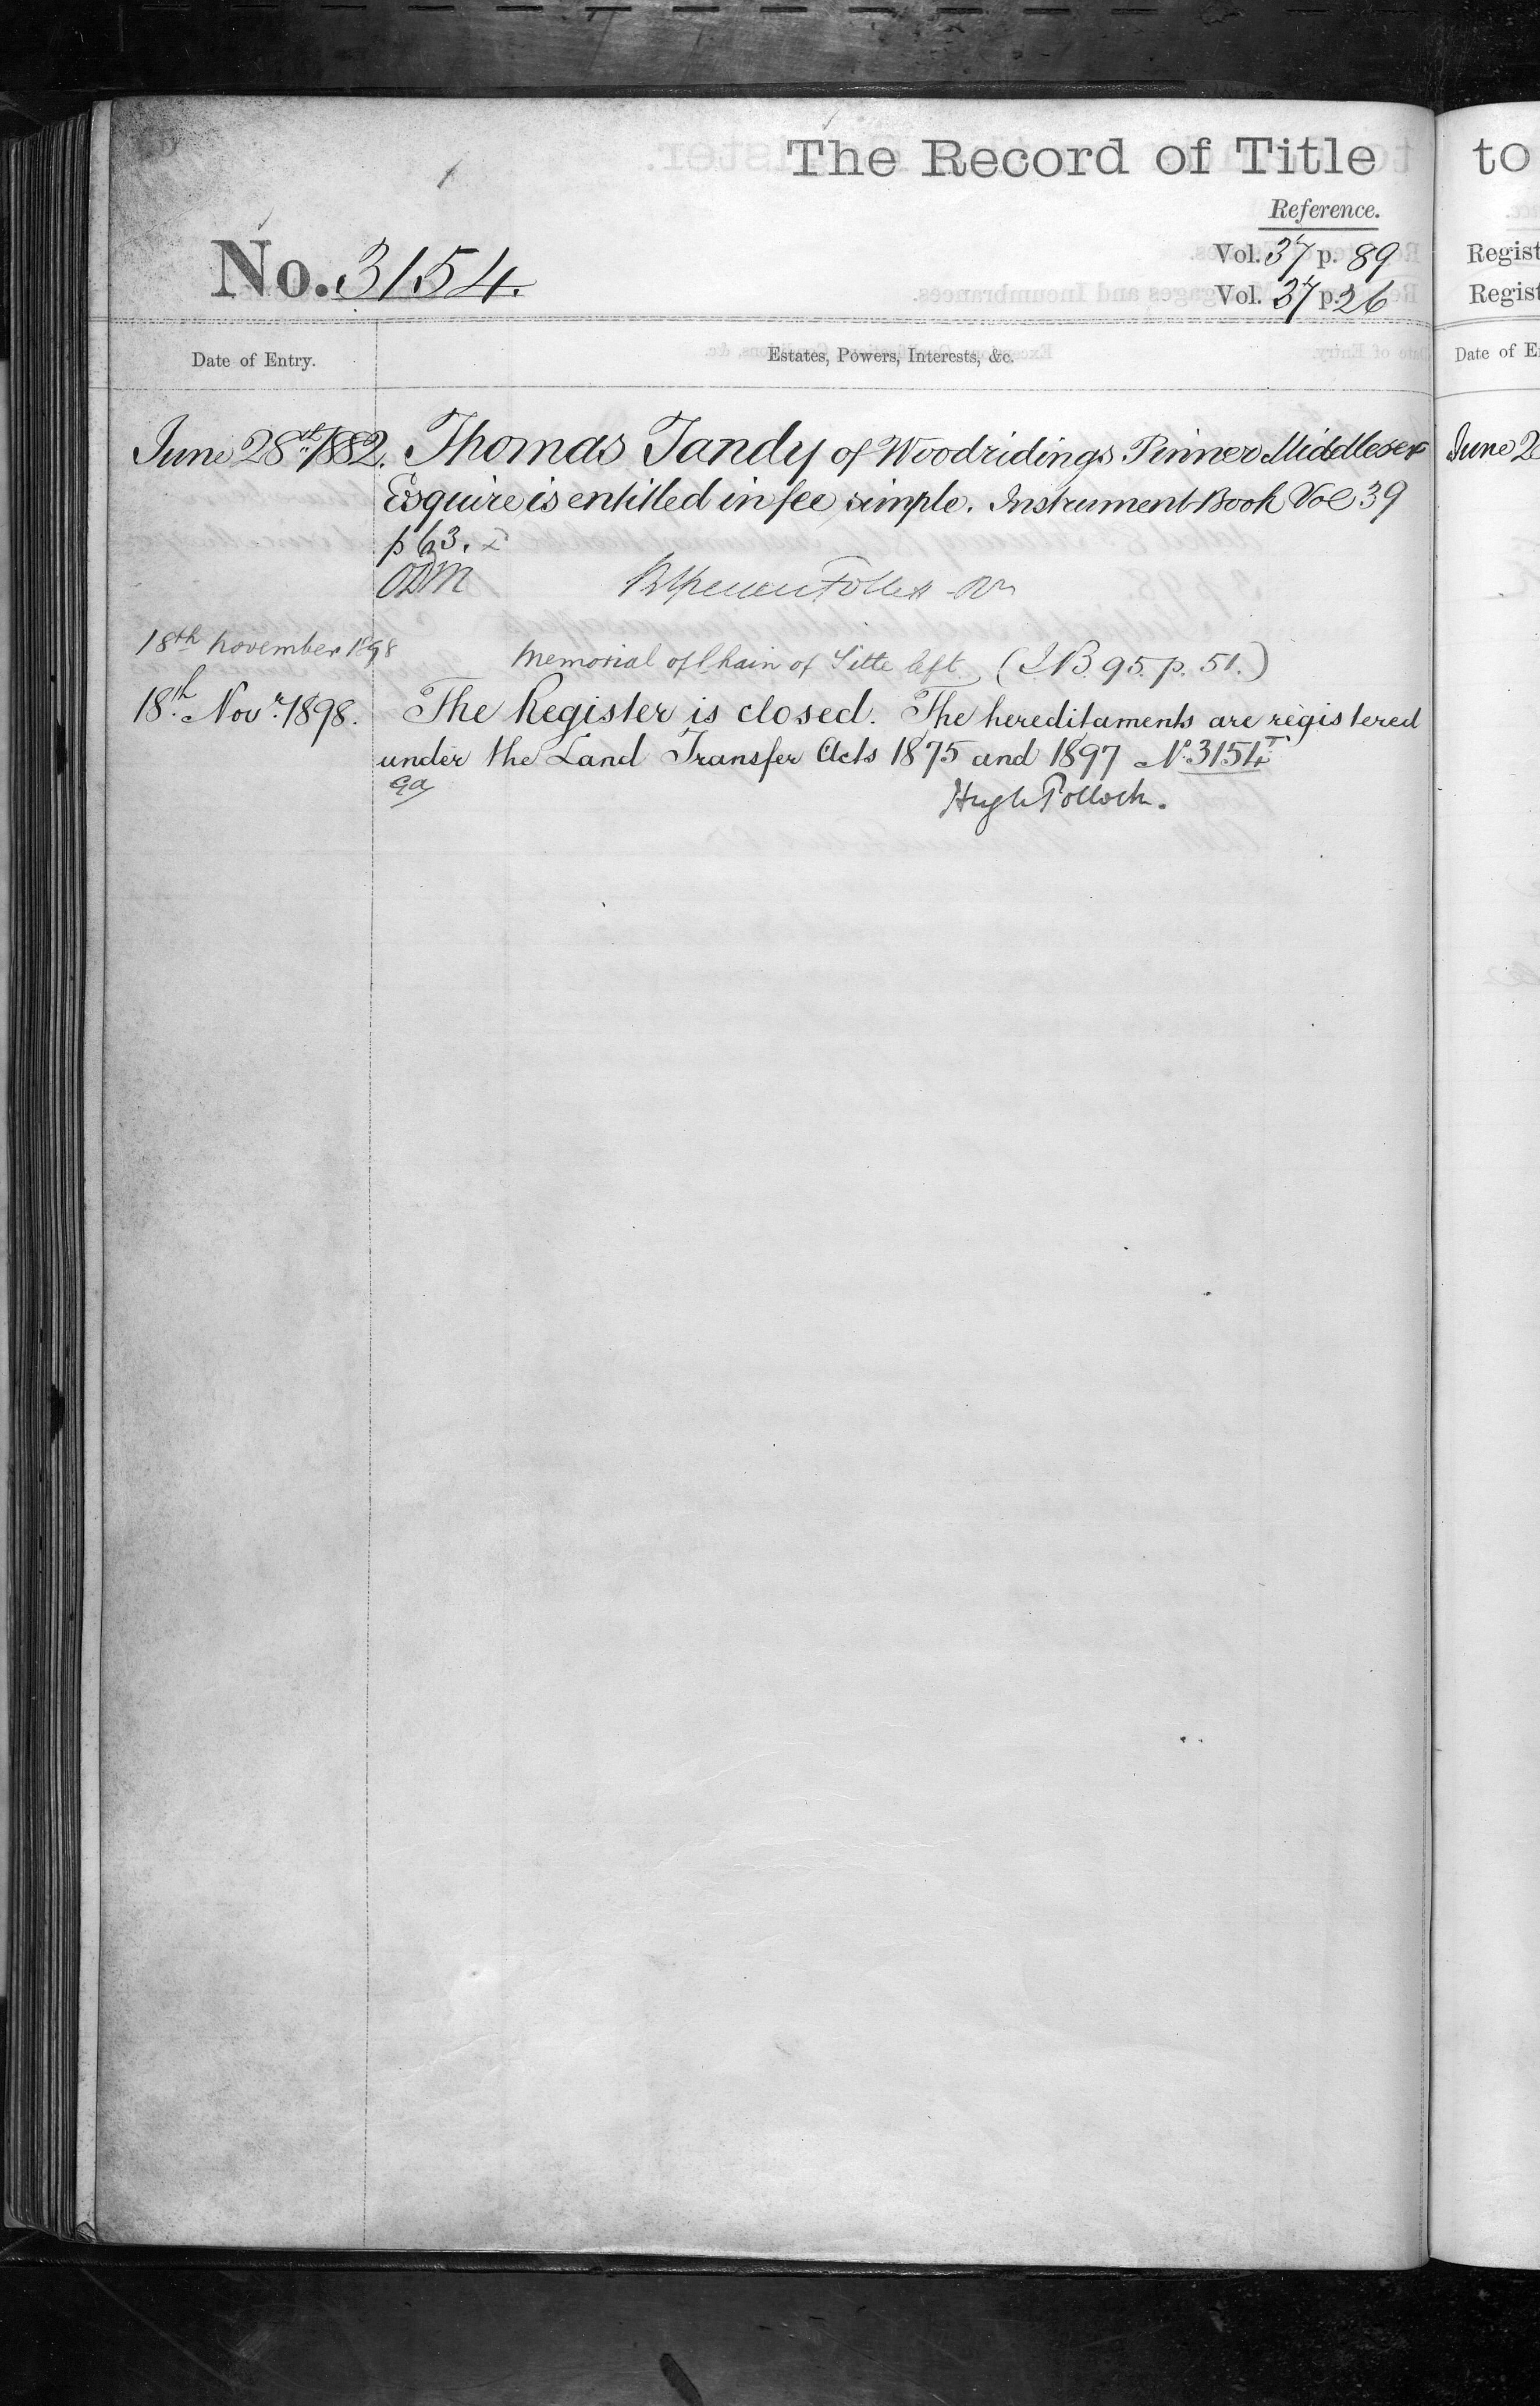 The Record of Title
Reference.
No. 3154.
Vol. 37 p. 89
Vol. 37 p. 26
Date of Entry.
Estates, Powers, Interests, &c.
June 28th 1882. Thomas Tandy of Woodridings Pinner Middlesex
Esquire is entitled in fee simple. Instrument Book Vol 39
p 63.
18th November 1898 Memorial of Chain of Title left. (IB. 95. p. 51.)
18th Novr. 1898. The Register is closed. The hereditaments are registered
under the Land Transfer Acts 1875 and 1897 No. 3154T
Hugh Pollock.
to
Regist
Regist
Date of E
June 2